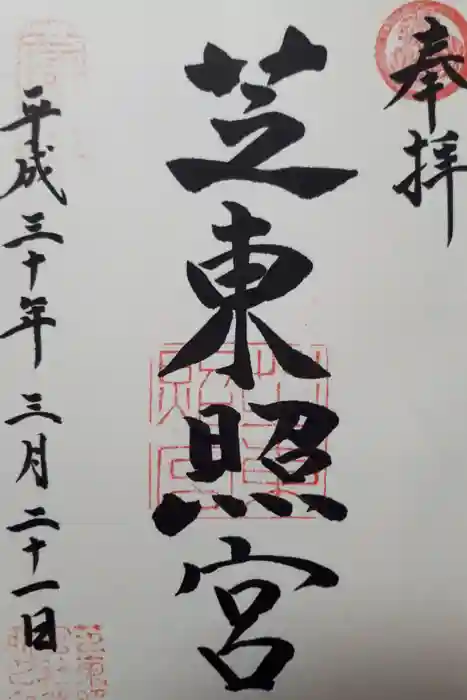 奉拝
芝東照宮
平成三十年三月二十一日